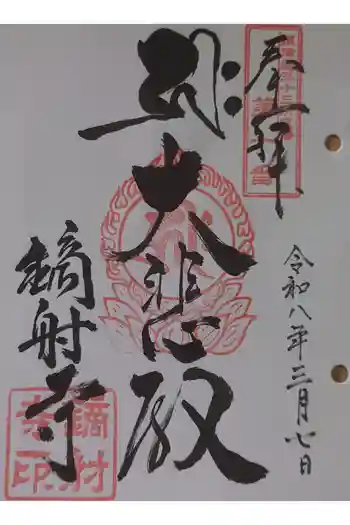 奉拝
令和八年三月七日
大悲殿
鏑射寺
鏑射
寺印